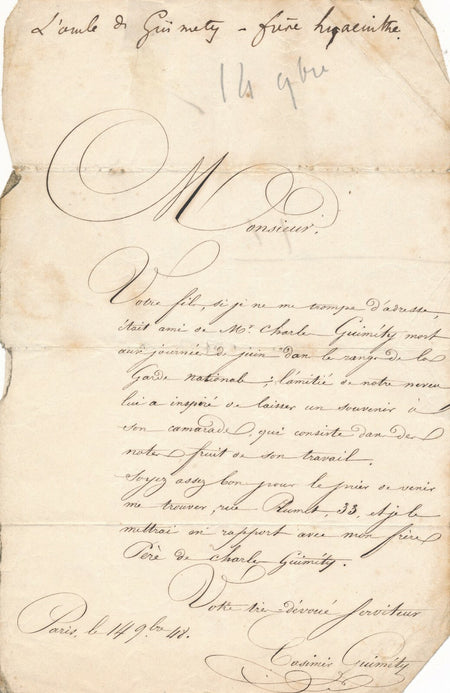 L'oncle de Guimety - frère hyacinthe.
14 9bre
Monsieur,
Votre fils, si je ne me trompe d'adresse,
était ami de Mr Charle Guiméty mort
aux journée de juin dan le range de la
Garde nationale ; l'amitié de notre neveu
lui a inspiré de laisser un souvenir à
son camarade, qui consiste dan des
notes fruit de son travail.
Soyez assez bon pour le prier de venir
me trouver, rue Plumet, 33, et je le
mettrai en rapport avec mon frère
Père de Charle Guiméty.
Votre tre dévoué serviteur
Paris, le 14 9bre 48.
Casimir Guiméty